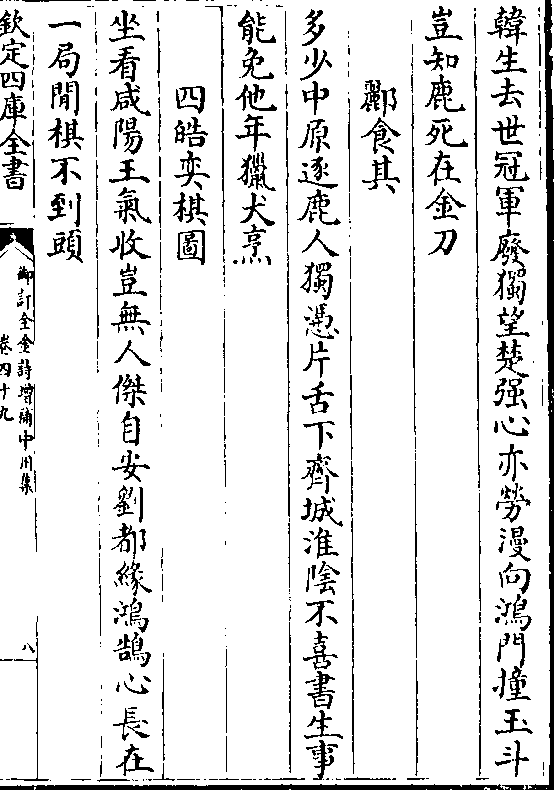 韓生去世冠軍廢獨望楚强心亦勞漫向鴻門撞玉斗
豈知鹿死在金刀
酈食其
多少中原逐鹿人獨憑片舌下齊城淮陰不喜書生事
能免他年獵犬烹
四皓奕棋圖
坐看咸陽王氣收豈無人傑自安劉都緣鴻鵠心長在
一局閒棋不到頭
欽定四庫全書
御訂全金詩增補中州集
卷四十九
八